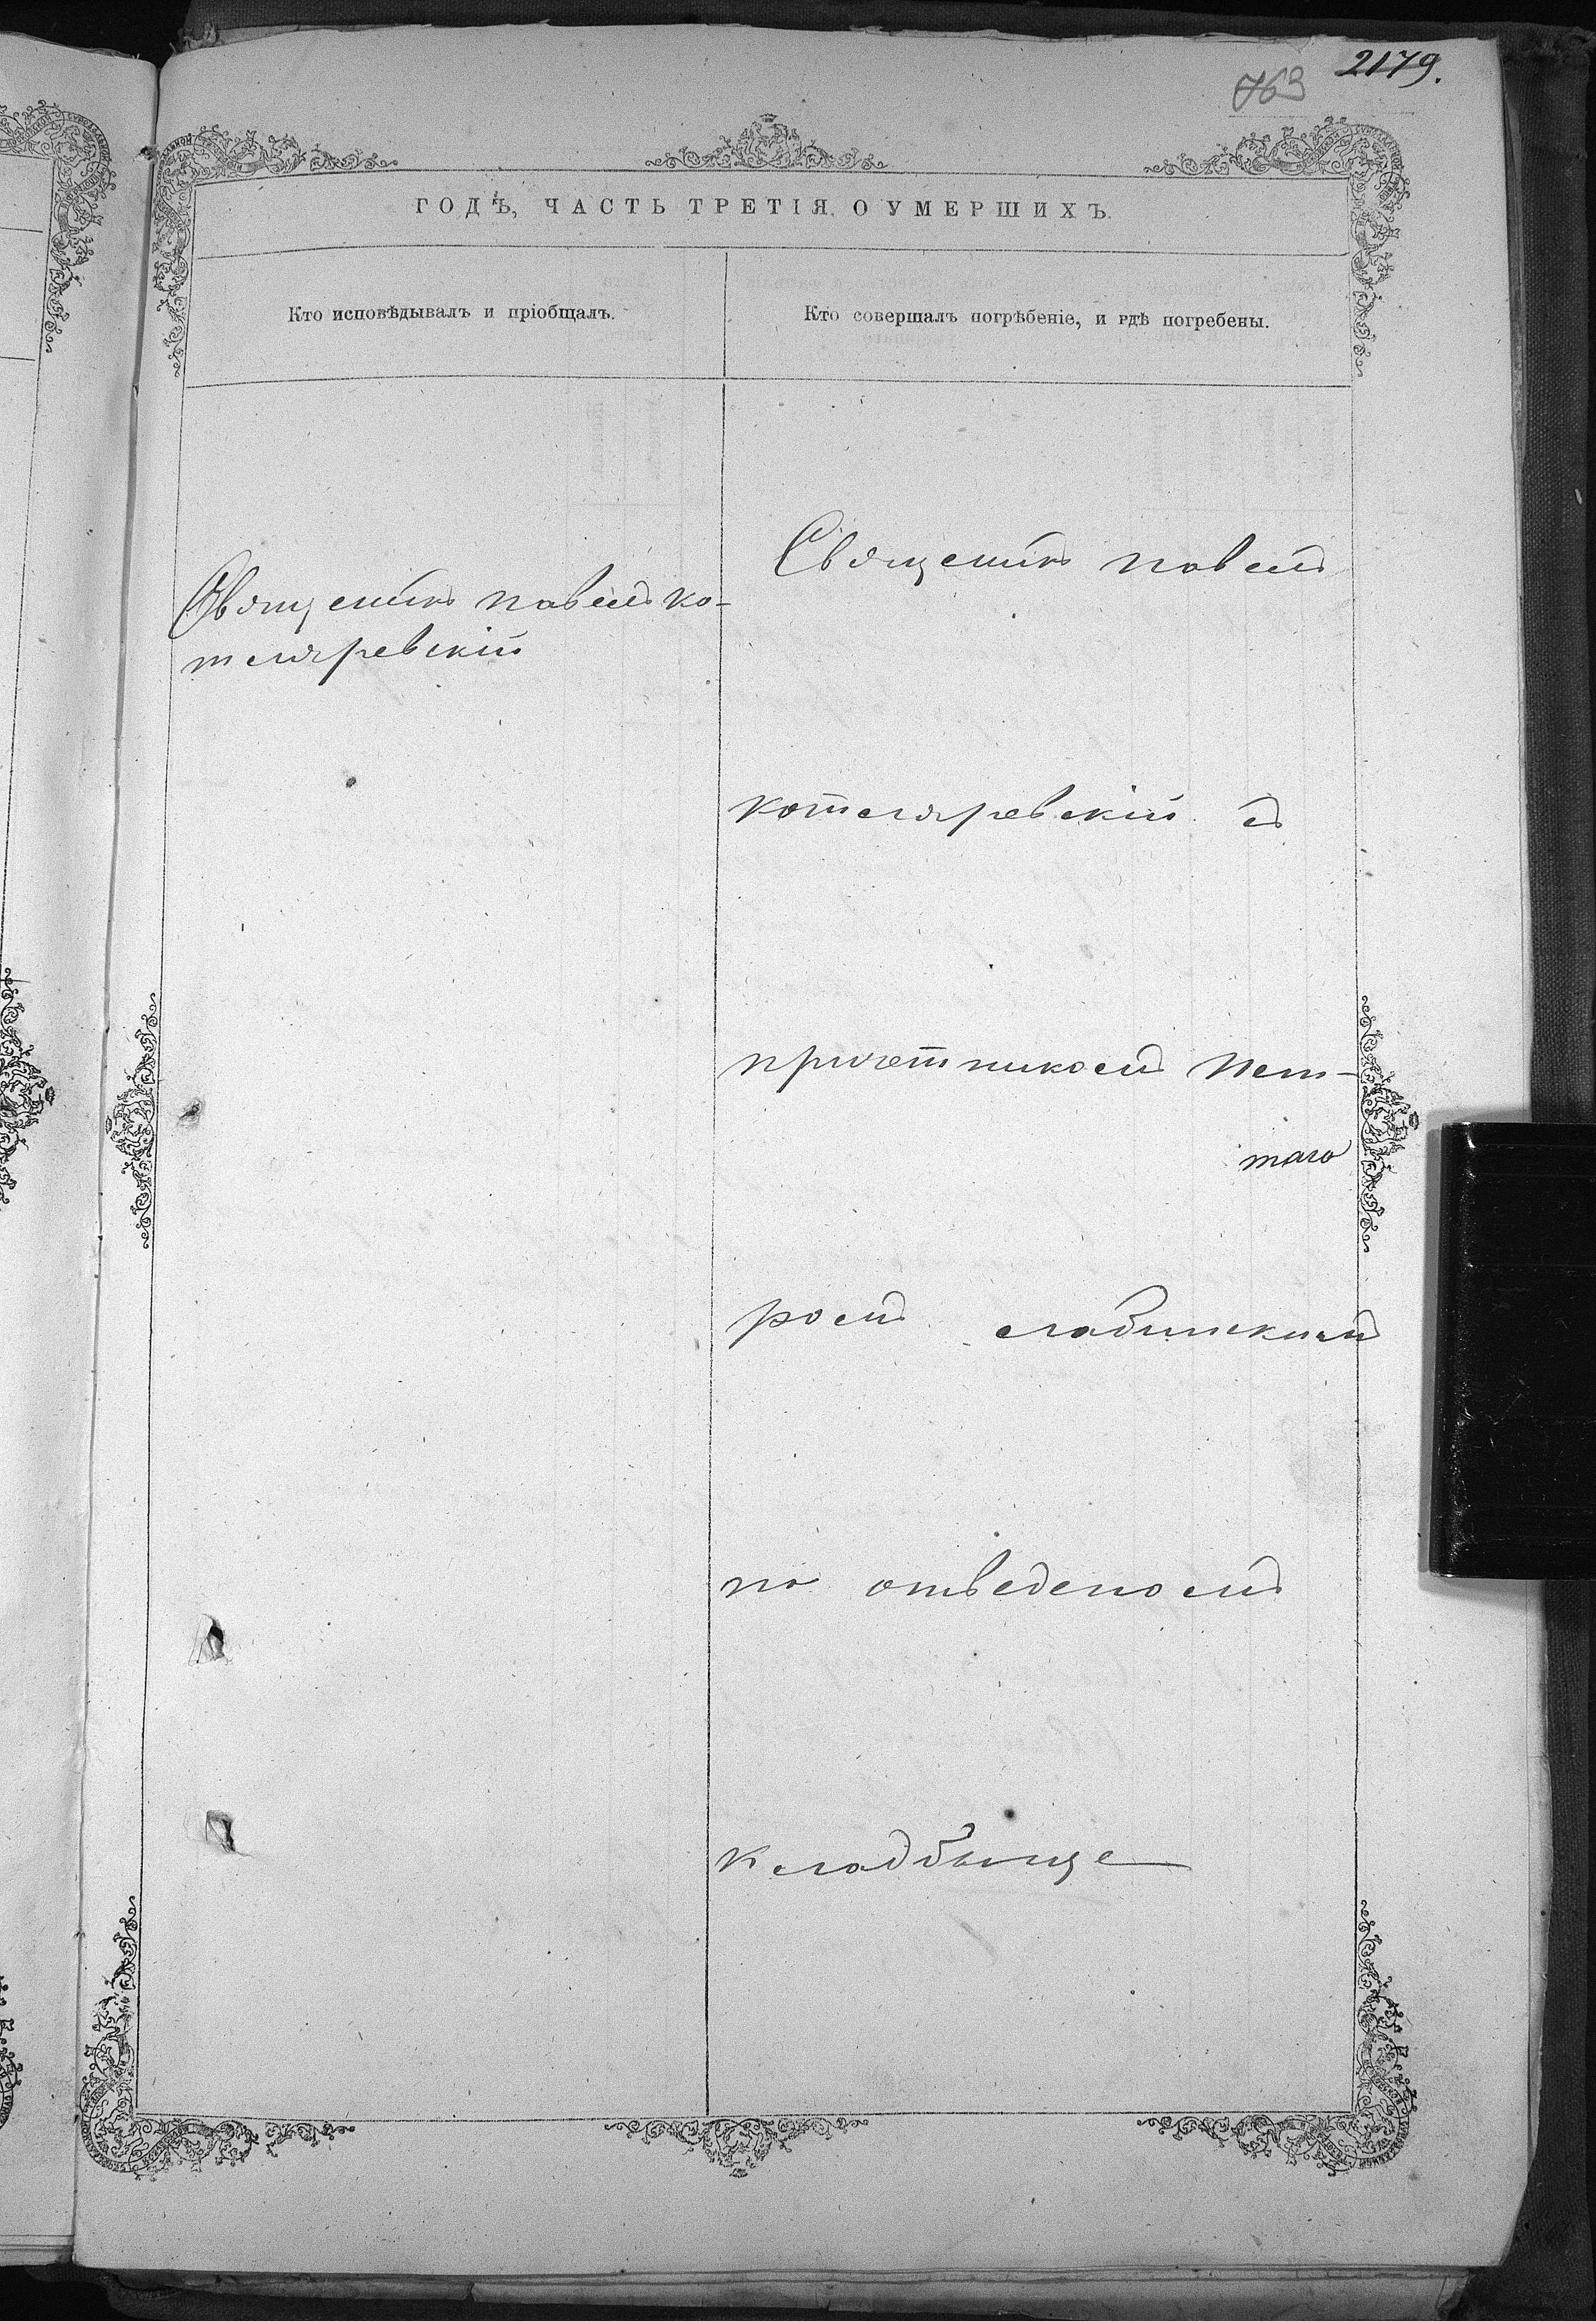 2179.
763
ГОДѢ, ЧАСТЬ ТРЕТІЯ, О УМЕРШИХЪ.
Кто исповѣдывалъ и пріобщалъ.
Кто совершалъ погрѣбеніе, и гдѣ погребены.
Священикъ павелъ ко-
теляревскій
Священикъ павелъ
котеляревскій съ
причетникомъ
таго
ромъ
на отведеномъ
кладбыще